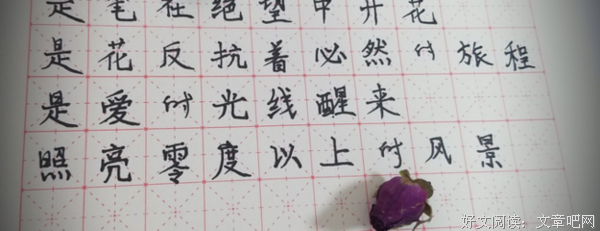 是笔在绝望中开花
是花反抗着必然的旅程
是愛的光线醒来
照亮零度以上的风景
好文阅读：文章吧网